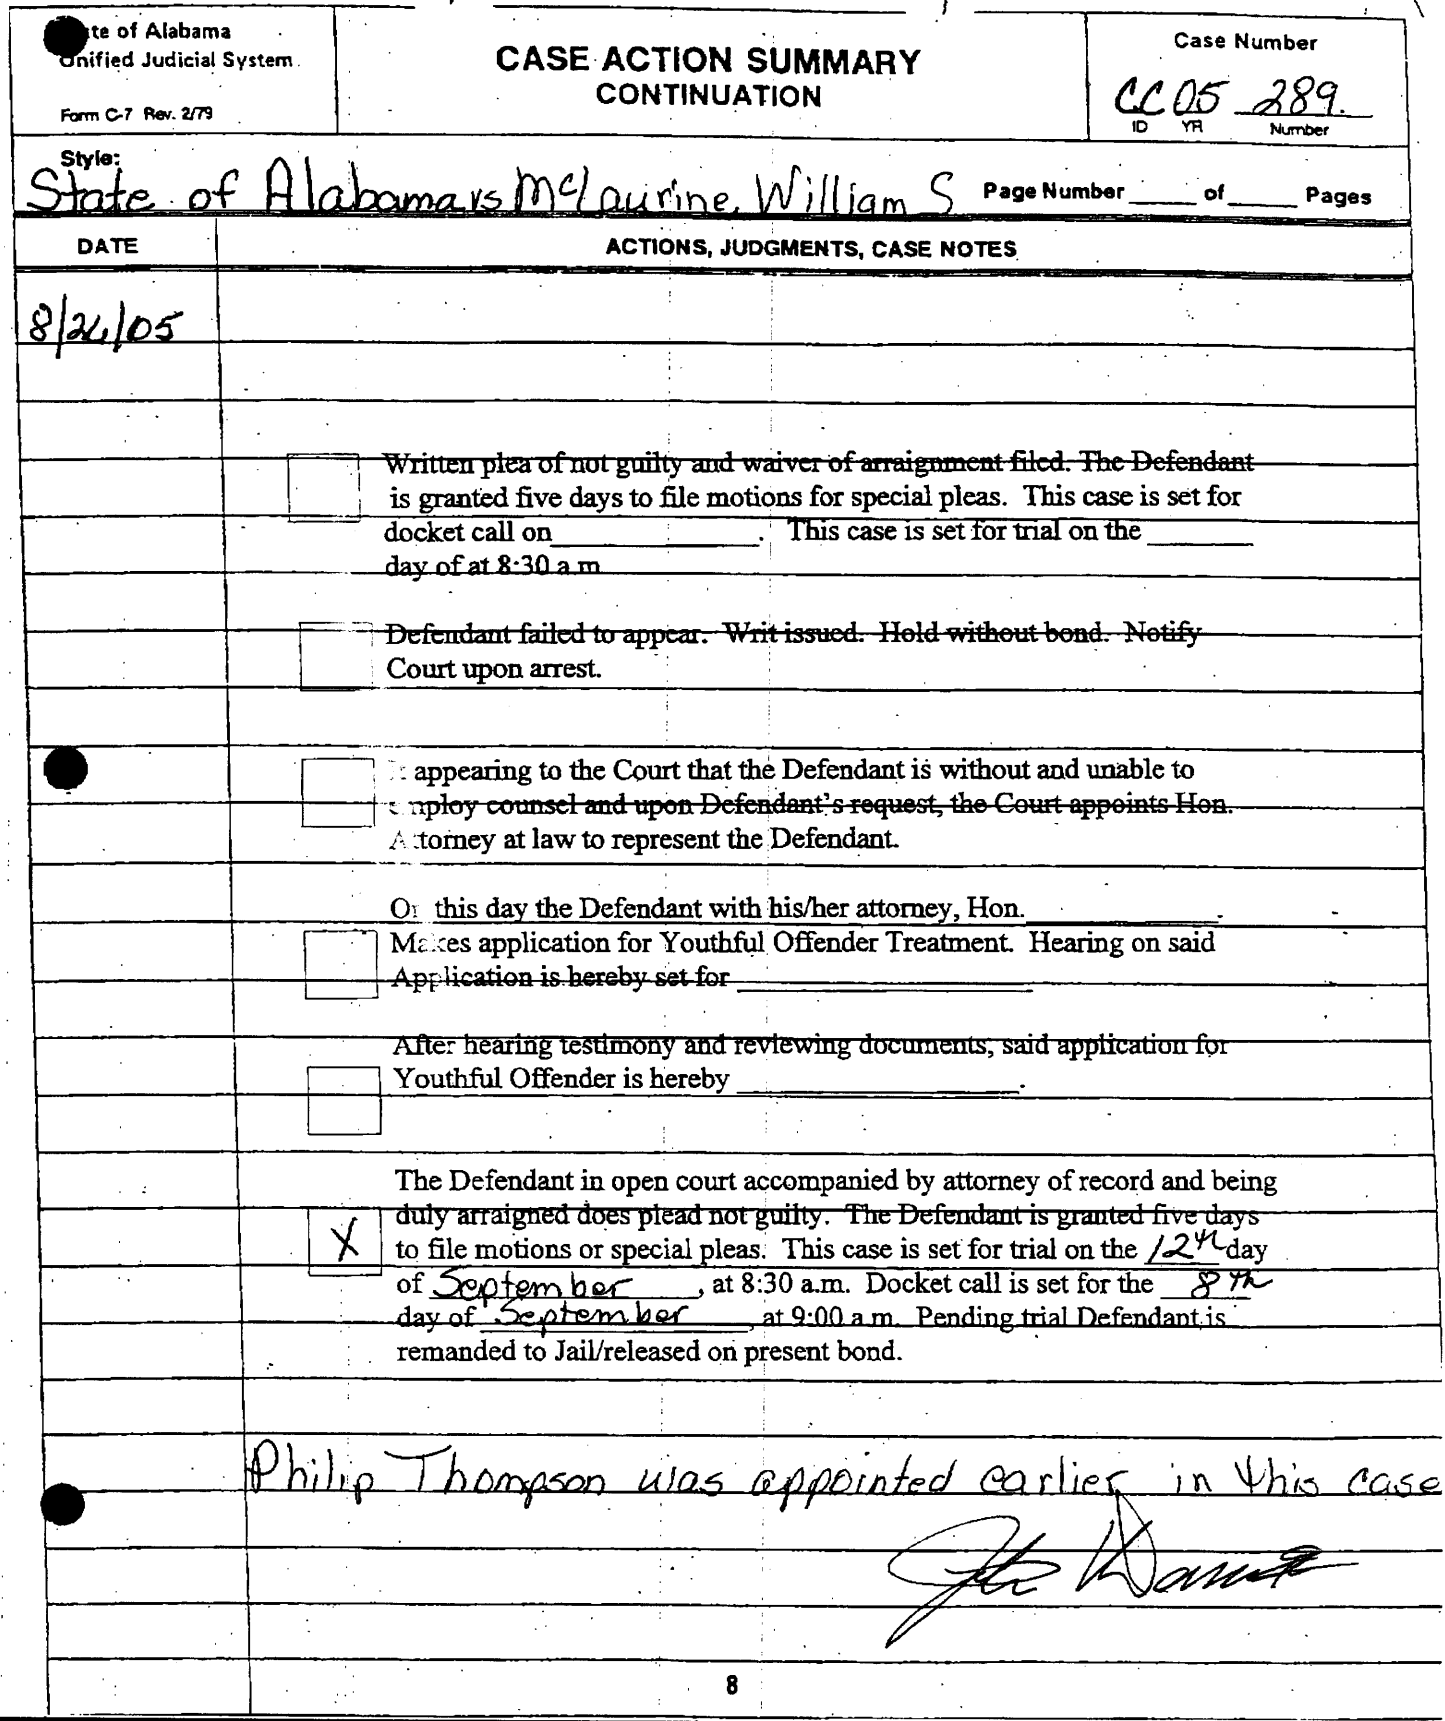 te of Alabama
Unified Judicial System
Form C-7 Rev. 2/79
CASE ACTION SUMMARY
CONTINUATION
Case Number
CC 05 289.
ID YR Number
Style:
State of Alabama vs McLaurine, William S Page Number ____ of ____ Pages
DATE ACTIONS, JUDGMENTS, CASE NOTES
8/24/05
Written plea of not guilty and waiver of arraignment filed. The Defendant
is granted five days to file motions for special pleas. This case is set for
docket call on ____. This case is set for trial on the ____
day of at 8:30 a.m
Defendant failed to appear. Writ issued. Hold without bond. Notify
Court upon arrest.
appearing to the Court that the Defendant is without and unable to
employ counsel and upon Defendant's request, the Court appoints Hon.
Attorney at law to represent the Defendant.
On this day the Defendant with his/her attorney, Hon. ____.
Makes application for Youthful Offender Treatment. Hearing on said
Application is hereby set for ____
After hearing testimony and reviewing documents, said application for
Youthful Offender is hereby ____.
The Defendant in open court accompanied by attorney of record and being
duly arraigned does plead not guilty. The Defendant is granted five days
X to file motions or special pleas. This case is set for trial on the 12th day
of September, at 8:30 a.m. Docket call is set for the 8th
day of September, at 9:00 a.m. Pending trial Defendant is
remanded to Jail/released on present bond.
Philip Thompson was appointed earlier in this case
8